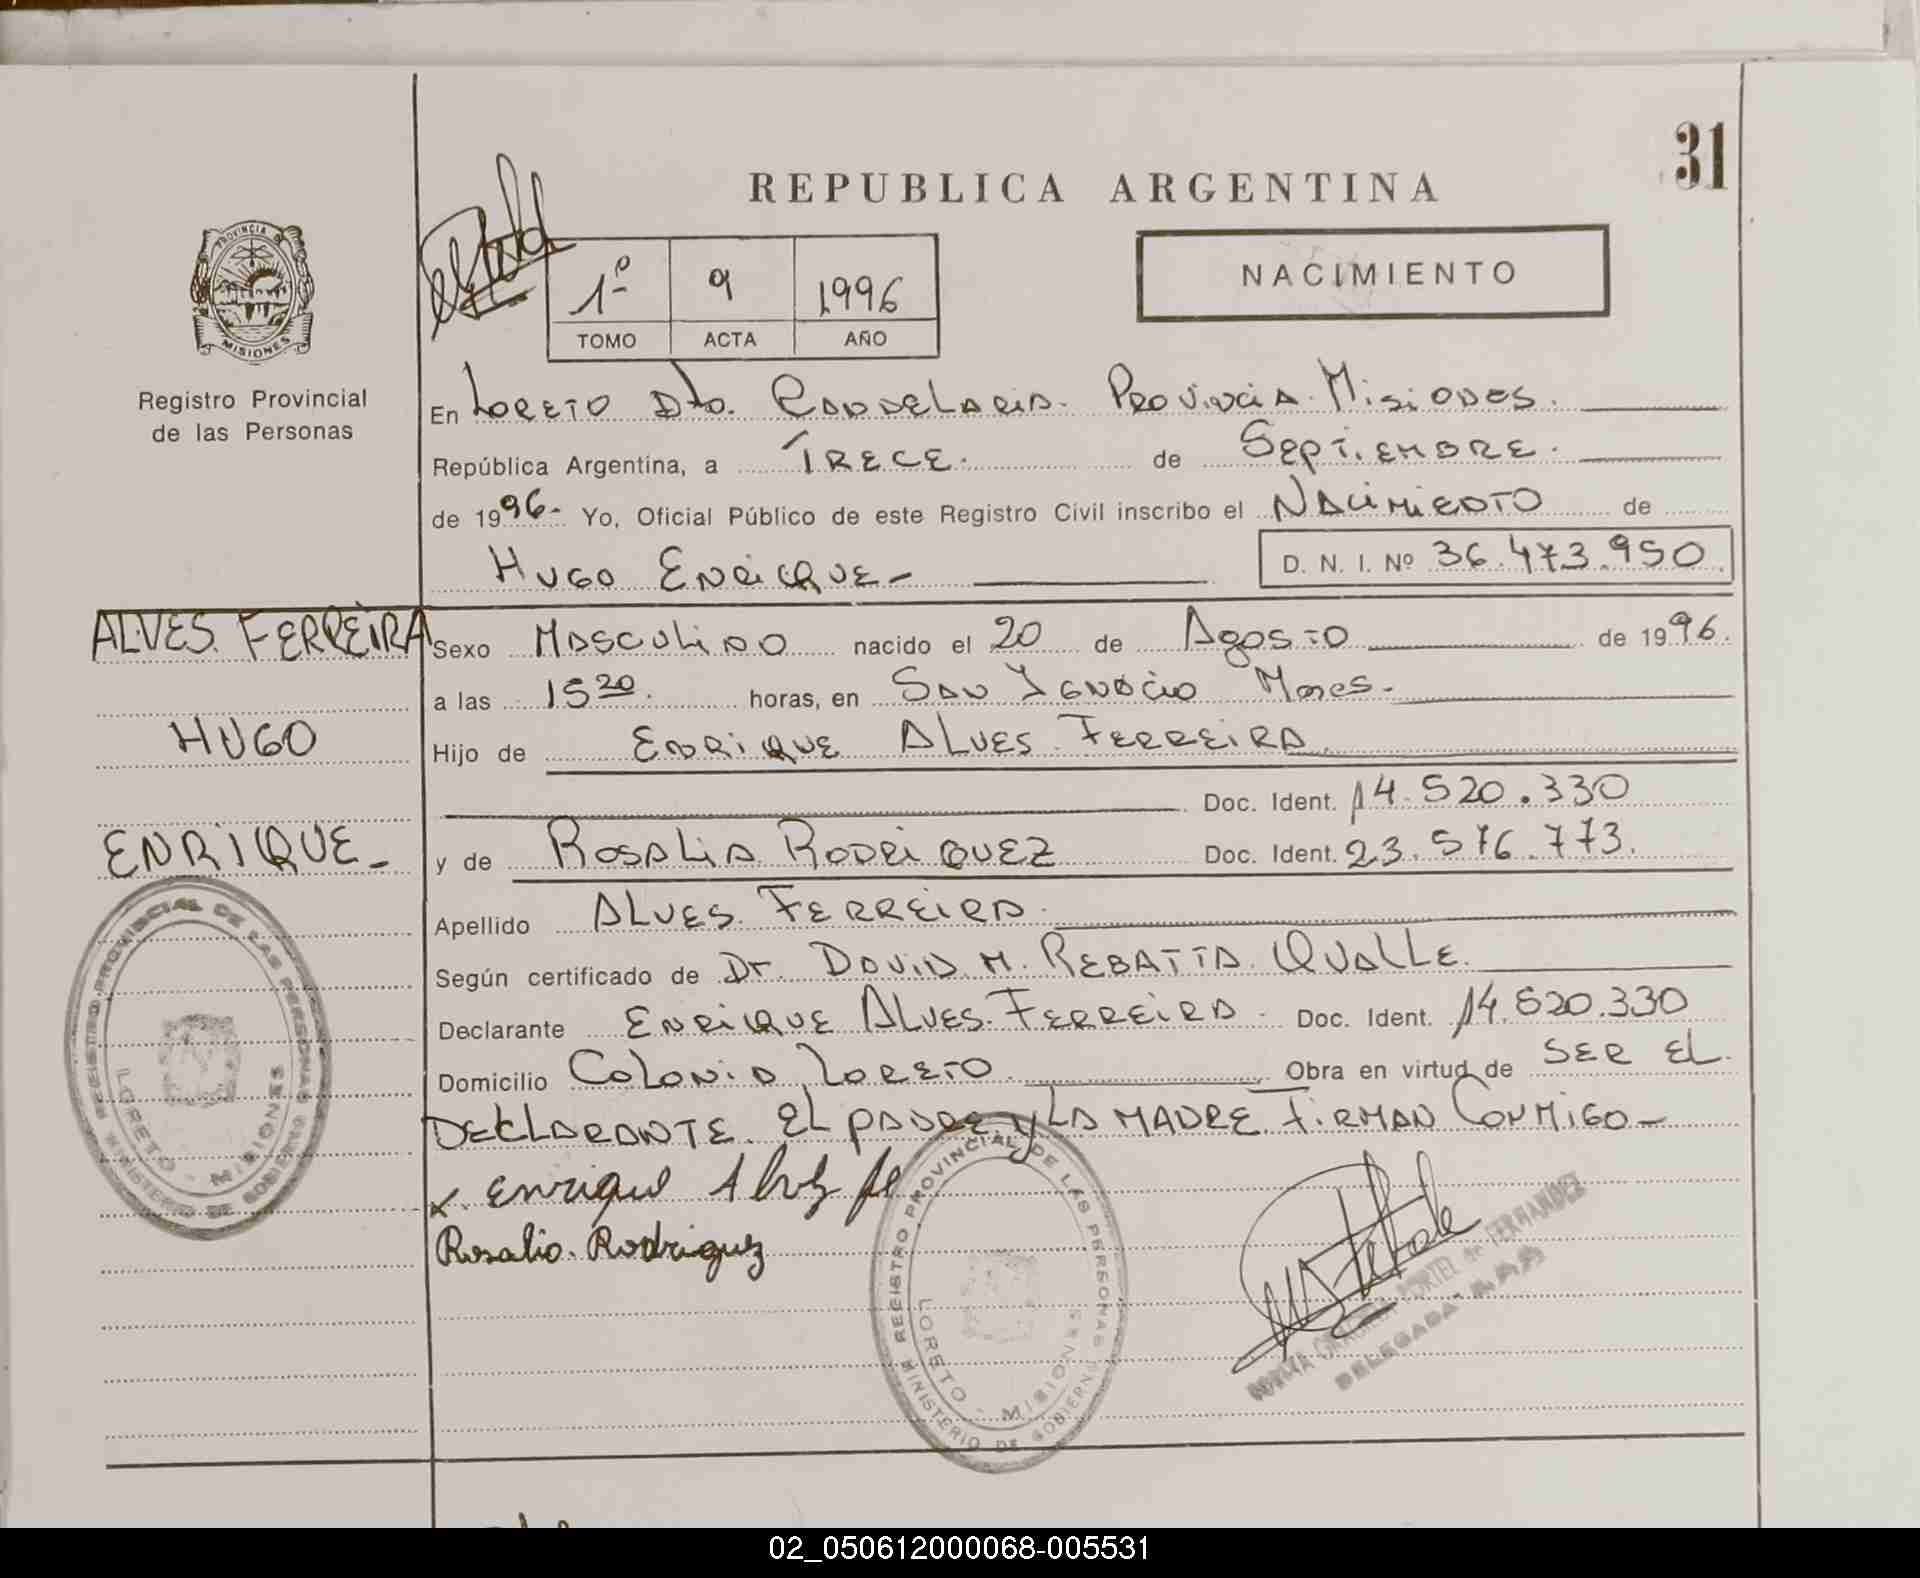 31
REPUBLICA ARGENTINA
PROVINCIA DE
MISIONES
Registro Provincial
de las Personas
1º 9 1996
TOMO ACTA AÑO
NACIMIENTO
En Loreto Dto. Candelaria. Provincia Misiones.
República Argentina, a Trece. de Septiembre.
de 1996- Yo, Oficial Público de este Registro Civil inscribo el Nacimiento de
Hugo Enrique- D. N. I. Nº 36.473.950
ALVES FERREIRA
HUGO
ENRIQUE-
Sexo Masculino nacido el 20 de Agosto de 1996.
a las 15 20. horas, en San Ignacio Mnes.
Hijo de Enrique Alves Ferreira
Doc. Ident. 14.520.330
y de Rosalia Rodriquez Doc. Ident. 23.576.773.
Apellido Alves Ferreira.
Según certificado de Dr. David M. Rebatta Qualle.
Declarante Enrique Alves Ferreira. Doc. Ident. 14.520.330
Domicilio Colonia Loreto Obra en virtud de ser el
Declarante. El padre y la madre firman conmigo-
x enrique
Rosalia Rodriguez
REGISTRO PROVINCIAL DE LAS PERSONAS
MINISTERIO DE GOBIERNO
LORETO - MISIONES
REGISTRO PROVINCIAL DE LAS PERSONAS
MINISTERIO DE GOBIERNO
LORETO - MISIONES
de FERNANDEZ
DELEGADA
02_050612000068-005531